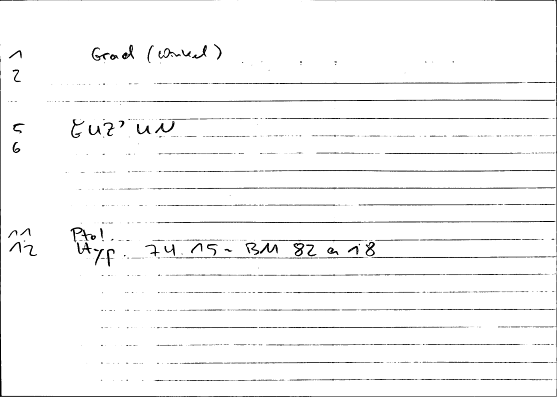 1 Grad (Winkel)
2
5 EUZ'UN
6
11 Ptol.
12 Hyp. 74 15 - BM 82 a 18